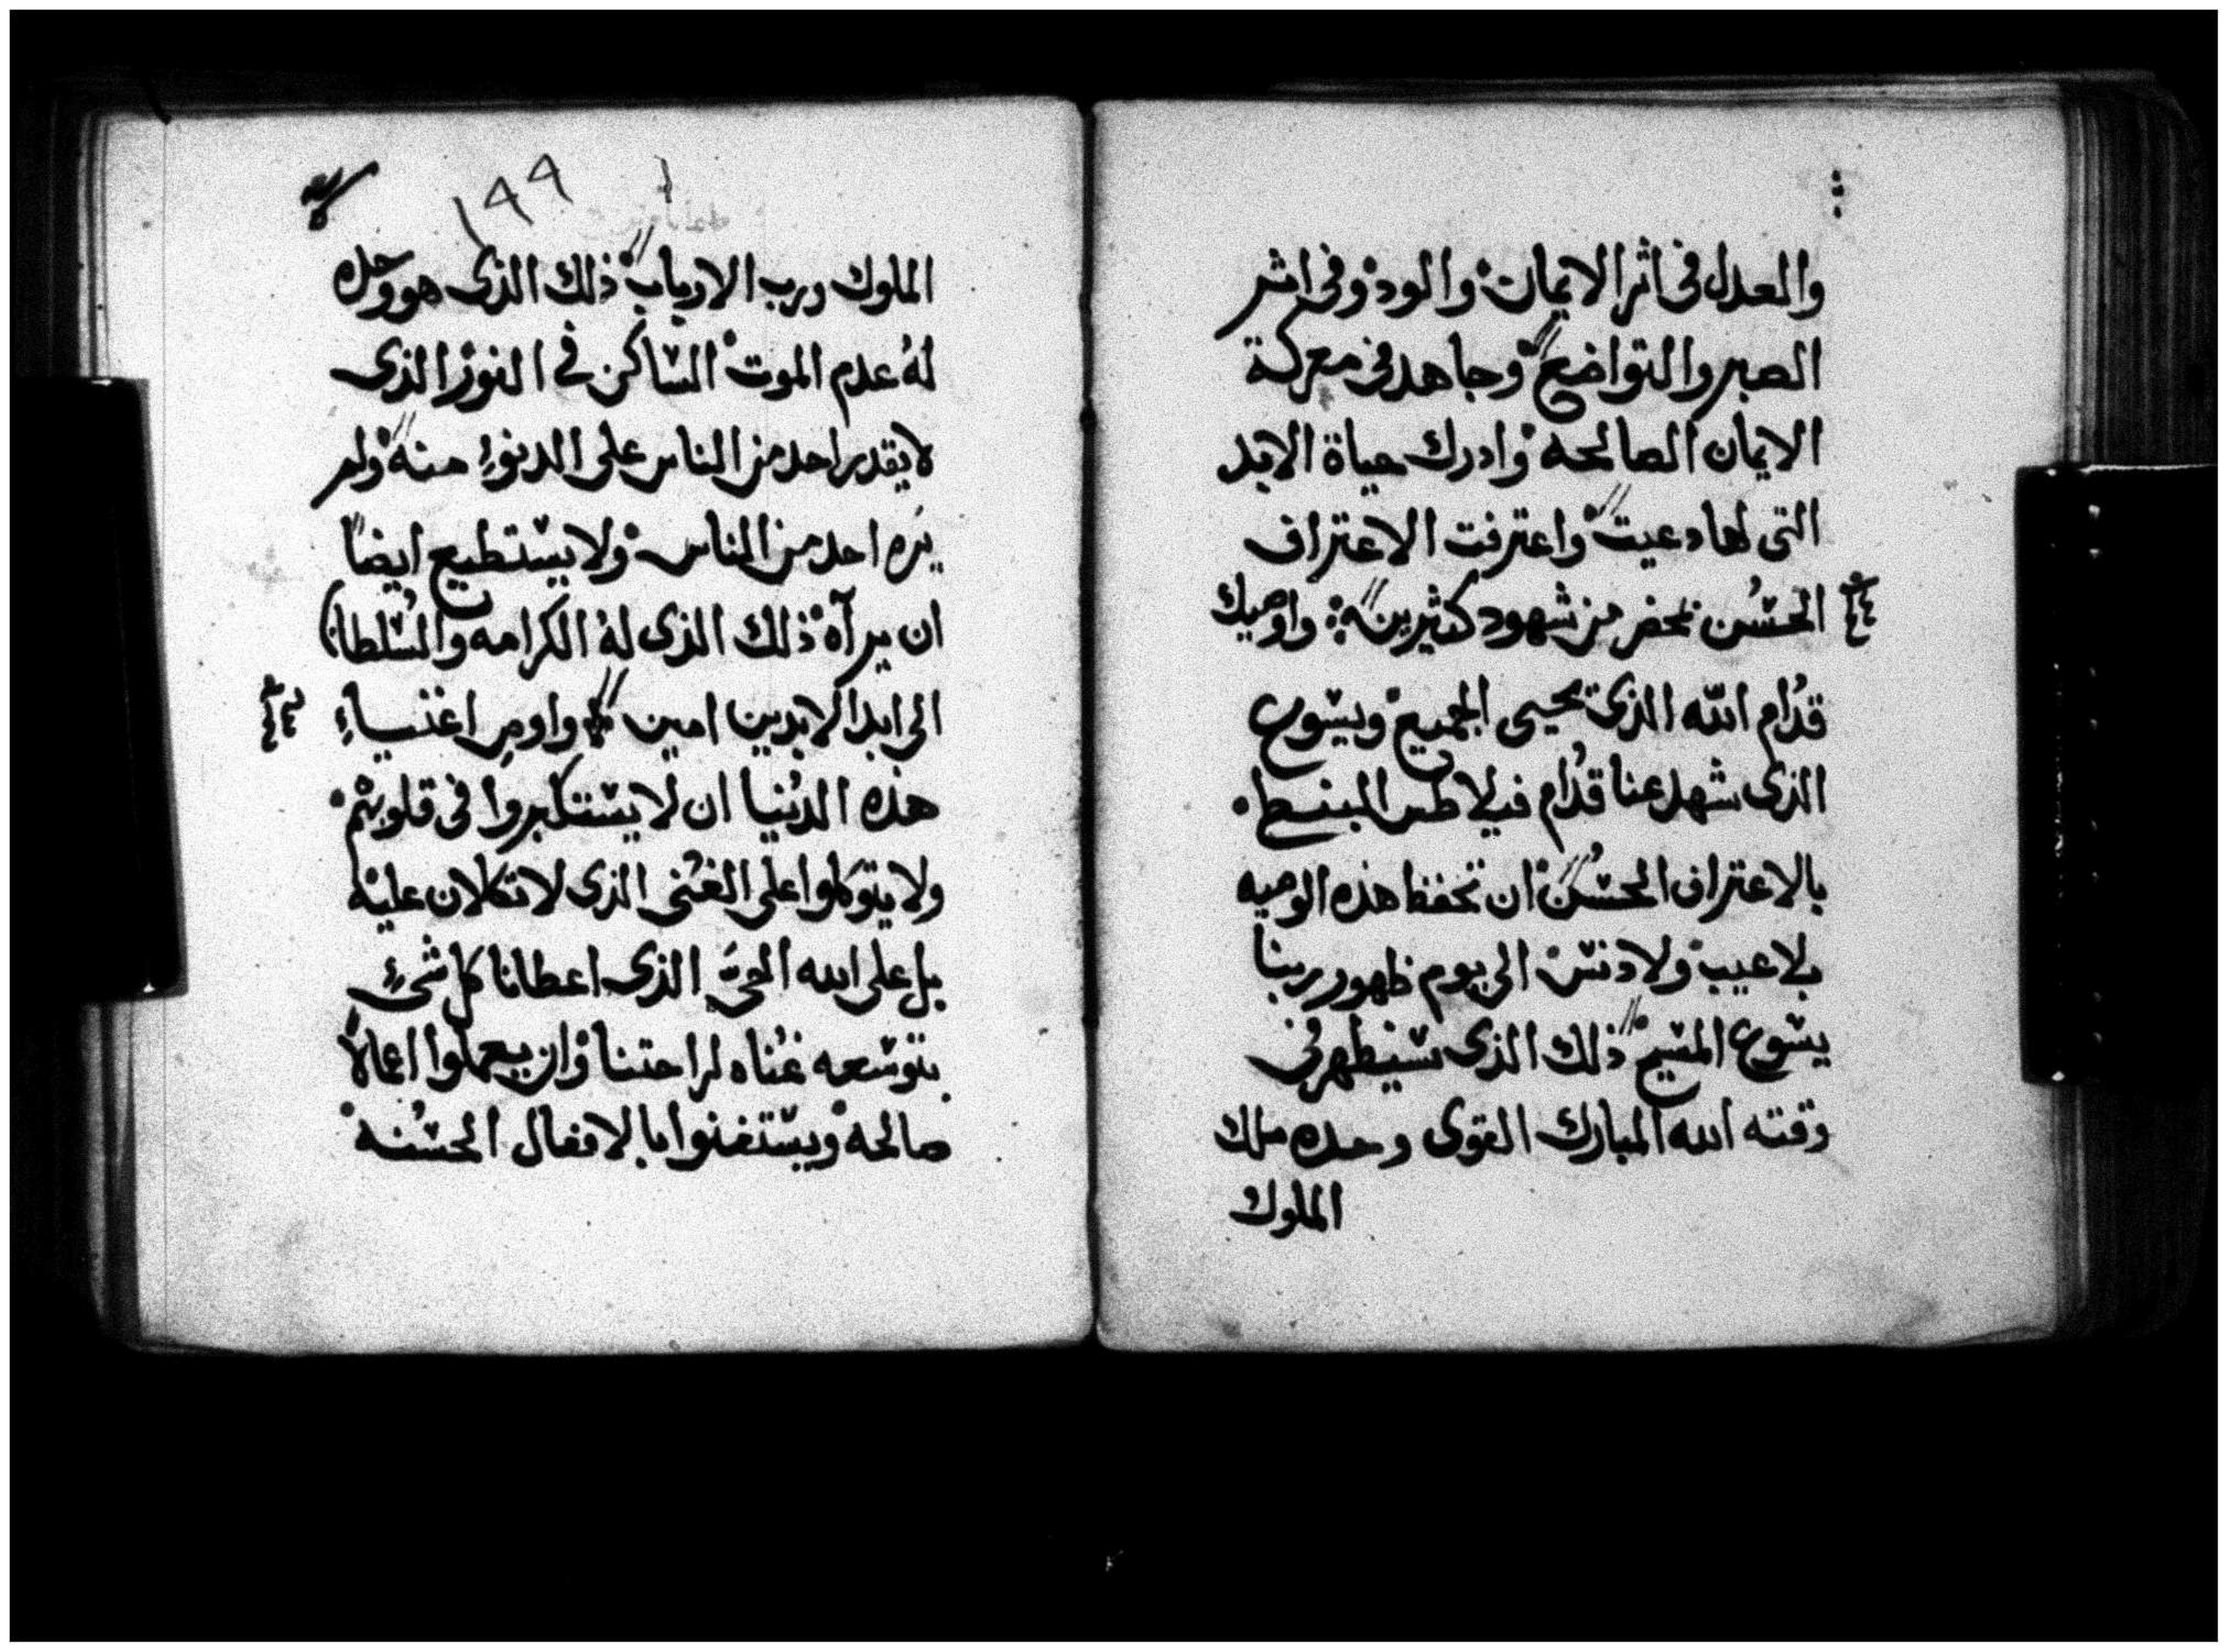 والعدل في اثر الايمان والود وفي اثر
الصبر والتواضع وجاهد في معركة
الايمان الصالحه وادرك حياة الابد
التي لها دعيت واعترفت الاعتراف
الحسن بمحضر من شهود كثيرين واوصيك
قدام الله الذي يحيي الجميع ويسوع
الذي شهد عنا قدام فيلاطس المبنطي
بالاعتراف الحسن ان تحفظ هذه الوصيه
بلا عيب ولا دنس الى يوم ظهور ربنا
يسوع المسيح ذلك الذي سيظهر في
وقته الله المبارك القوى وحده ملك
الملوك
١٩٩
الملوك ورب الارباب ذلك الذي هو وحده
له عدم الموت الساكن في النور الذي
لا يقدر احد من الناس على الدنوء منه ولم
يره احد من الناس ولا يستطيع ايضاً
ان يرآه ذلك الذي له الكرامه والسلطان
الى ابد الابدين امين واومر اغنياء
هذه الدنيا ان لا يستكبروا في قلوبهم
ولا يتوكلوا على الغنى الذي لا تكلان عليه
بل على الله الحيّ الذي اعطانا كل شئ
بتوسعه غناه لراحتنا وان يعملوا اعمالاً
صالحه ويستغنوا بالافعال الحسنه